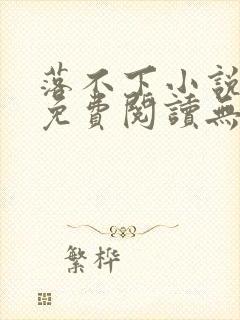 落不下小說
免費閱讀無
繁桦